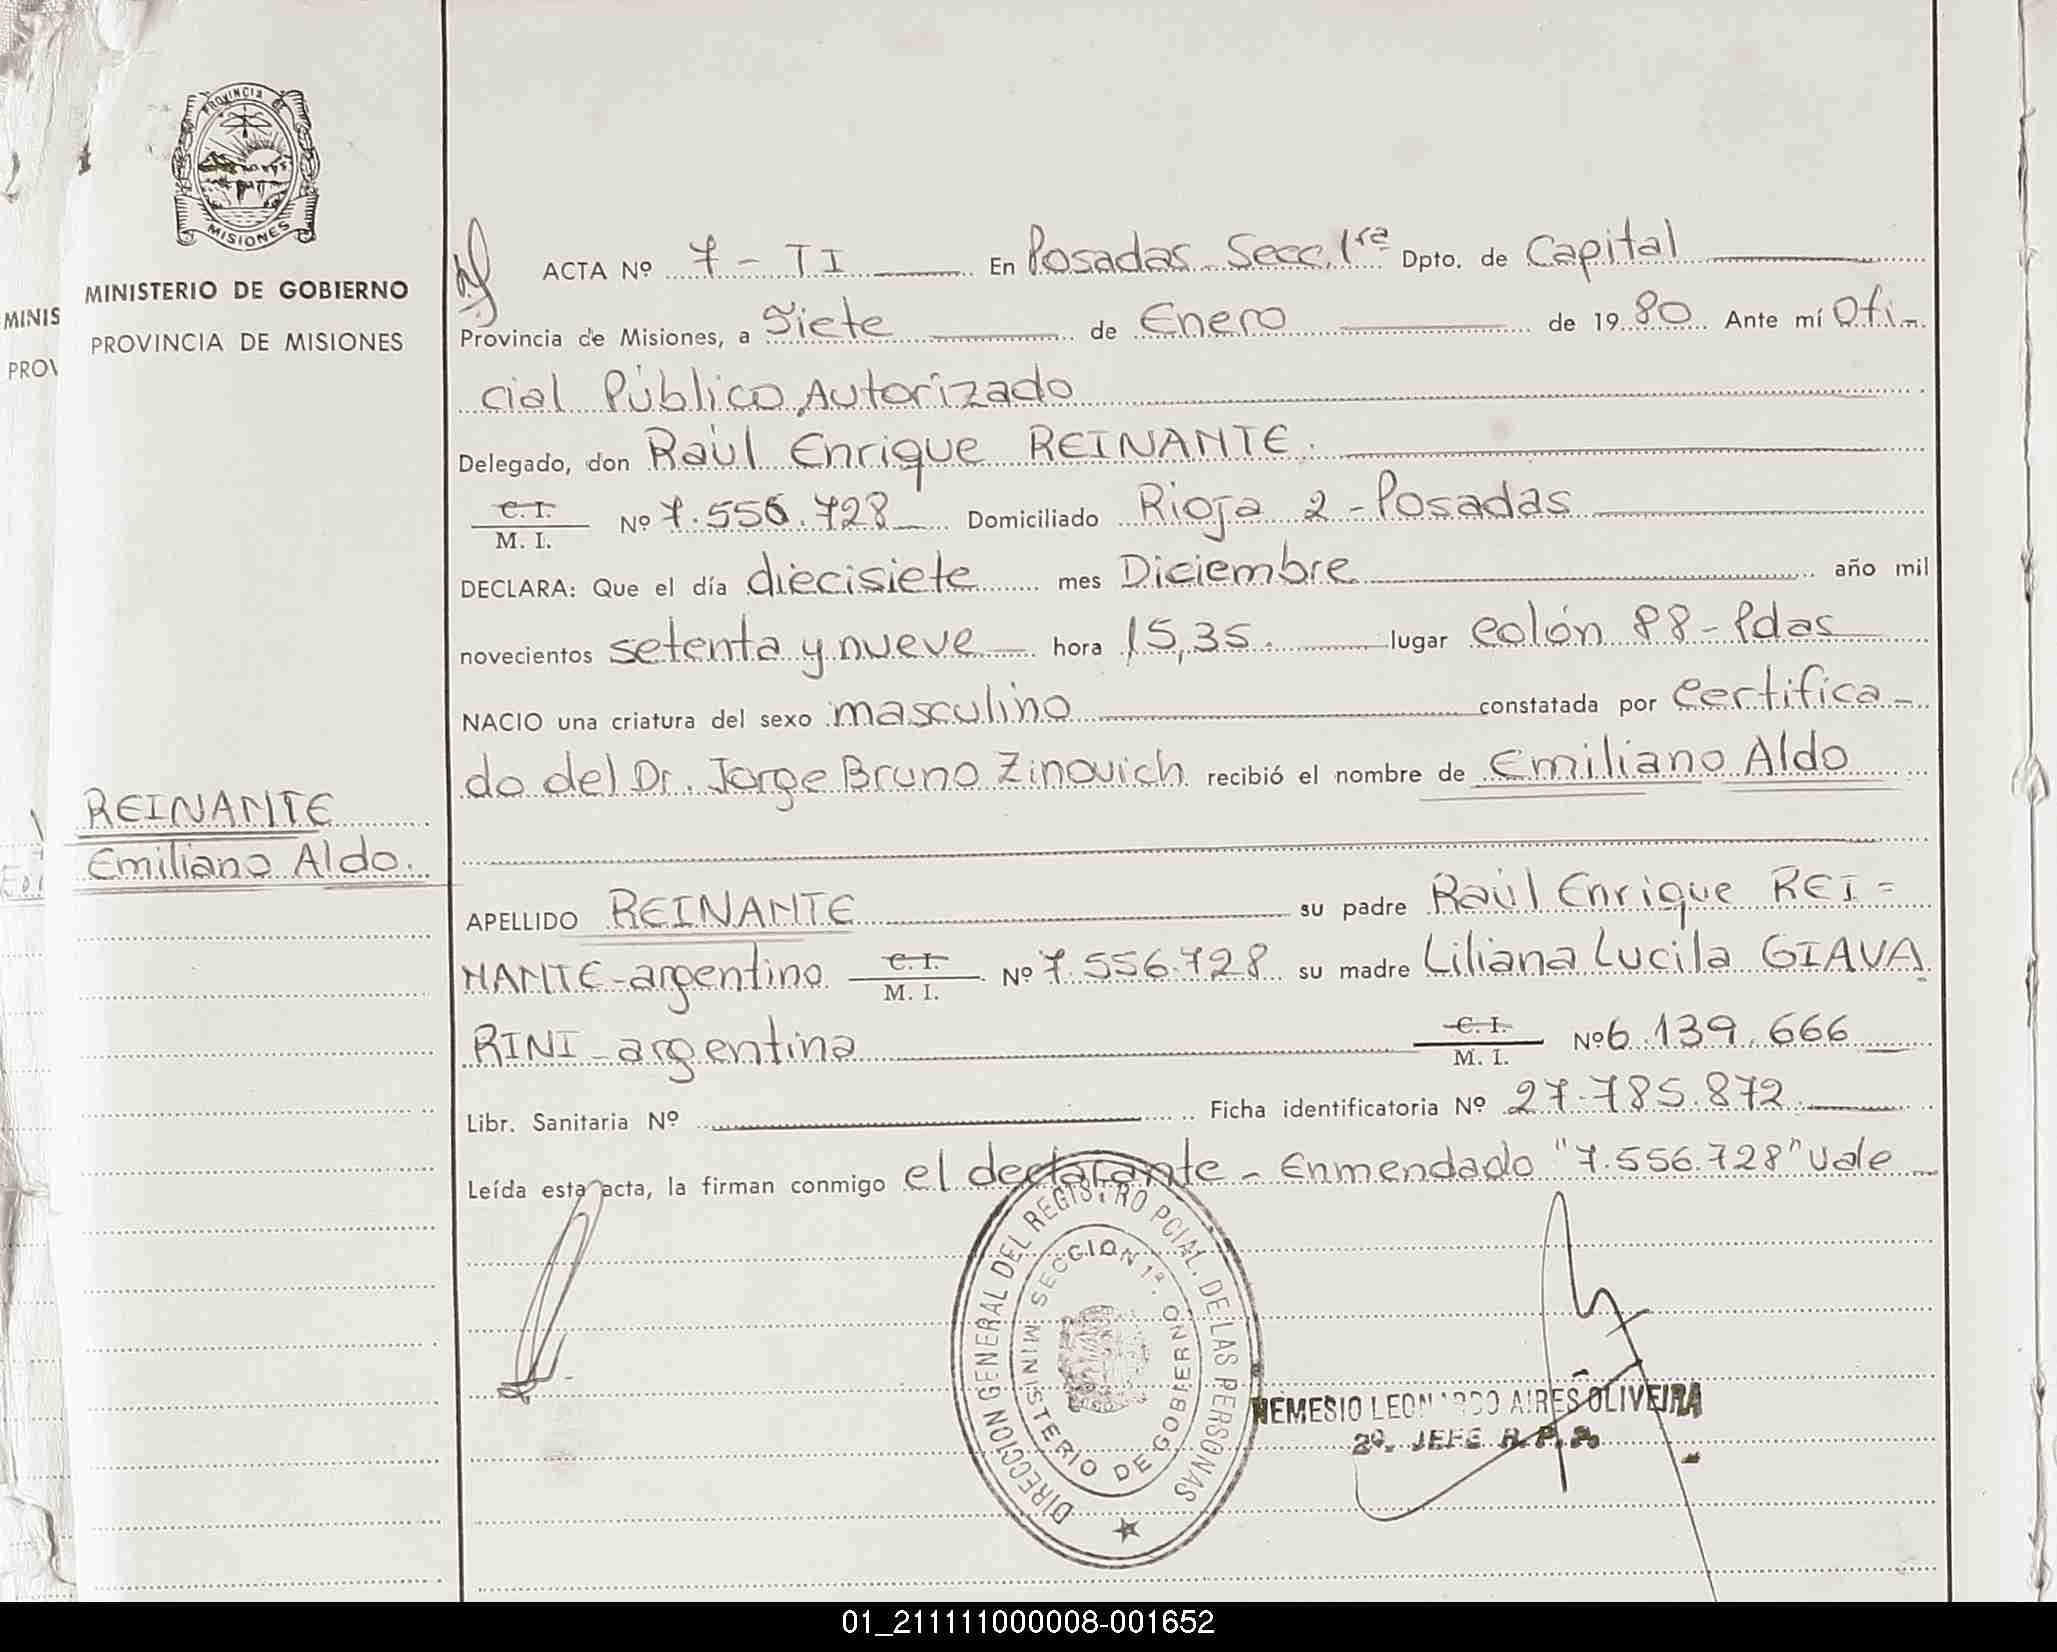 PROVINCIA DE
MISIONES
MINISTERIO DE GOBIERNO
PROVINCIA DE MISIONES
MINIS
PROV
ACTA Nº 7 - TI En Posadas Secc. 1ra Dpto. de Capital
Provincia de Misiones, a Siete de Enero de 1980 Ante mí Ofi-
cial Público Autorizado
Delegado, don Raúl Enrique REINANTE.
C. I.
M. I. Nº 7.556.728 Domiciliado Rioja 2 - Posadas
DECLARA: Que el día diecisiete mes Diciembre año mil
novecientos setenta y nueve hora 15,35. lugar colón 88 - Pdas
NACIO una criatura del sexo masculino constatada por certifica-
do del Dr. Jorge Bruno Zinovich recibió el nombre de Emiliano Aldo
REINANTE
Emiliano Aldo.
APELLIDO REINANTE su padre Raúl Enrique REI=
NANTE - argentino C. I. M. I. Nº 7.556.728 su madre Liliana Lucila GIAVA
RINI - argentina C. I. M. I. Nº 6.139.666
Libr. Sanitaria Nº Ficha identificatoria Nº 27.785.872
Leída esta acta, la firman conmigo el declarante - Enmendado "7.556.728" vale
DIRECCION GENERAL DEL REGISTRO PCIAL. DE LAS PERSONAS
SECCION 1ª.
MINISTERIO DE GOBIERNO
NEMESIO LEONARDO AIRES OLIVEIRA
2º. JEFE R. P. P.
01_211111000008-001652